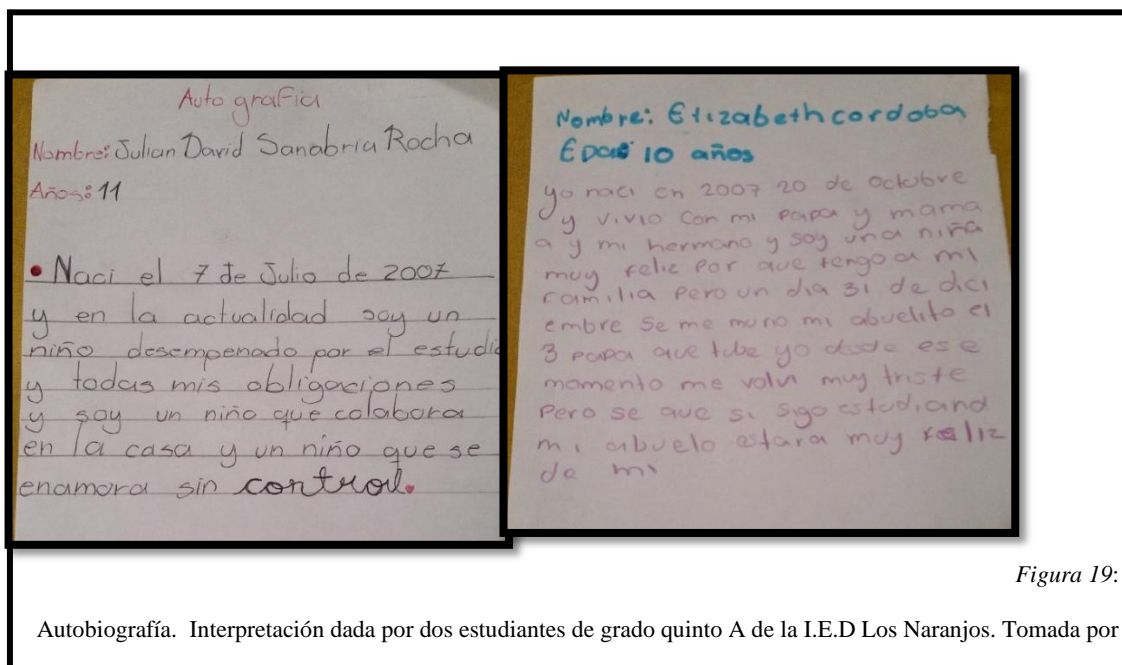 Auto grafia
Nombre: Julian David Sanabria Rocha
Años: 11
• Naci el 7 de Julio de 2007
y en la actualidad soy un
niño desempenado por el estudio
y todas mis obligaciones
y soy un niño que colabora
en la casa y un niño que se
enamora sin control.
Nombre: Elizabeth cordoba
Edad 10 años
yo naci en 2007 20 de octubre
y vivio con mi papa y mama
a y mi hermano y soy una niña
muy feliz por que tengo a mi
familia pero un dia 31 de dici
embre se me murio mi abuelito el
3 papa que tube yo desde ese
momento me volvi muy triste
pero se que si sigo estudiand
mi abuelo estara muy feliz
de mi
Figura 19:
Autobiografía. Interpretación dada por dos estudiantes de grado quinto A de la I.E.D Los Naranjos. Tomada por